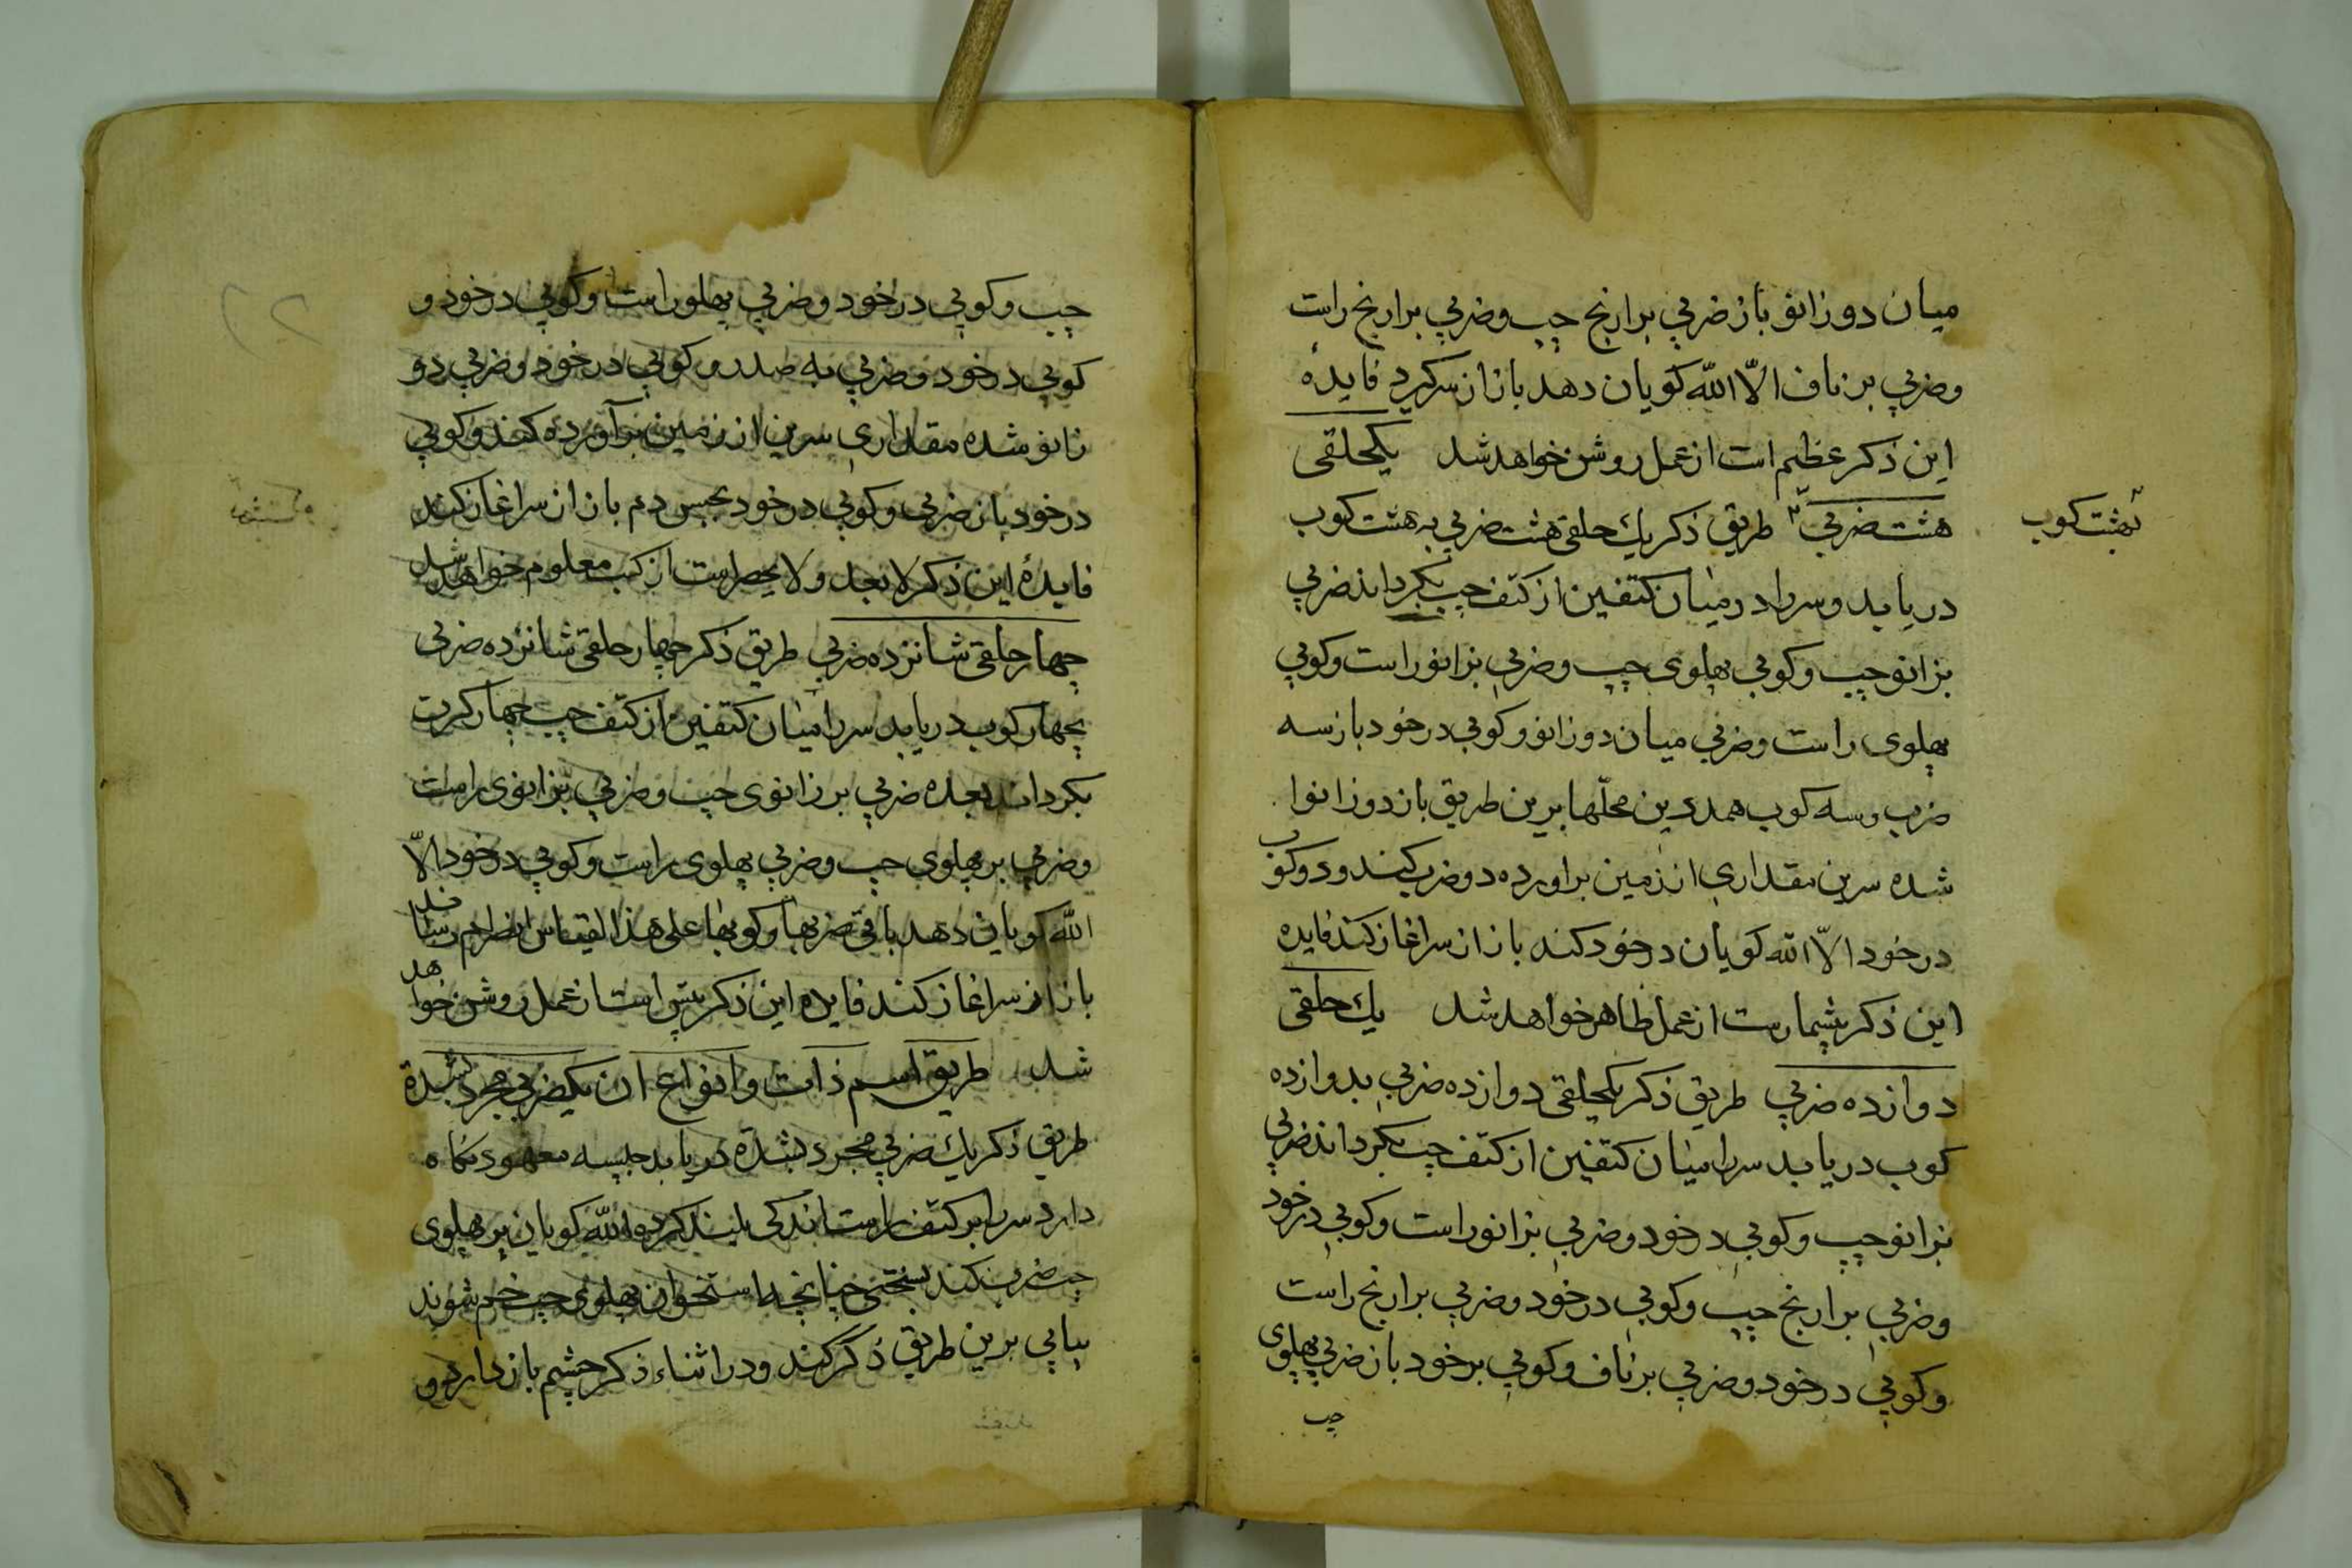 میان دو زانو باز ضربي بر ارنج چپ و ضربي بر ارنج راست
وضربي بر ناف الّا اللّه کویان دهد باز از سر کیرد فایدهٔ
این ذکر عظیم است از عمل روشن خواهد شد یکحلقی
هشت ضربي طریق ذکر یك حلقی هشت ضربي به هشت کوب
بهشت کوب
دریابد و سر را در میان کتفین از کتف چپ بکرداند ضربي
بزانو چپ و کوبي پهلوی چپ و ضربي بزانو راست و کوبي
پهلوی راست وضربي میان دو زانو و کوبي در خود باز سه
ضرب وسه کوب همدرین محلّها برین طریق باز دو زانوا
شده سرین مقداري از زمین براورده دو ضرب کند و دو کوب
در خود الّا اللّه کویان در خود کند باز از سر اغاز کند فایده
این ذکر بیشمارست از عمل ظاهر خواهد شد یك حلقی
دوازده ضربي طریق ذکر یکحلقی دوازده ضربي بدوازده
کوب دریابد سر را میان کتفین از کتف چپ بکرداند ضربي
بزانو چپ و کوبي در خود و ضربي بزانو راست و کوبي در خود
وضربي بر ارنج چپ و کوبي در خود و ضربي بر ارنج راست
و کوبي در خود و ضربي بر ناف و کوبي بر خود باز ضربي پهلوی
چپ
چپ و کوبي در خود و ضربي پهلو راست و کوبي در خود و
کوبي در خود و ضربي به صدر و کوبي در خود و ضربي دو
زانو شده مقداري سرین از زمین بر آورده کند و کوبي
در خود باز ضربي و کوبي در خود بحبس دم باز از سر اغاز کند
فایدهٔ این ذکر لا یعد ولا یحصر است از کسب معلوم خواهد شد
چهار حلقی شانزده ضربي طریق ذکر چهار حلقی شانزده ضربي
بچهار کوب دریابد سر را میان کتفین از کتف چپ چهار کرت
بکرداند بعده ضربي بر زانوی چپ و ضربي بزانوی راست
وضربي بر پهلوی چپ و ضربي پهلوی راست و کوبي در خود الّا
اللّه کویان دهد باقي ضربها و کوبها علی هذا القیاس انصرام رساند
باز از سر اغاز کند فایده این ذکر است از عمل روشن خواهد
شد طریق اسم ذات و انواع ان یکضربي مجرد بشدة
طریق ذکر یك ضربي مجرد بشدة دریابد جلسه معهود نکاه
دارد سر را بر کتف راست اندکی بلند کرده اللّه کویان بر پهلوی
چپ ضرب کند بسختی چنانچه استخوان پهلوی چپ خم شوند
بیاپی برین طریق ذکر کند و در اثناء ذکر چشم باز دارد و